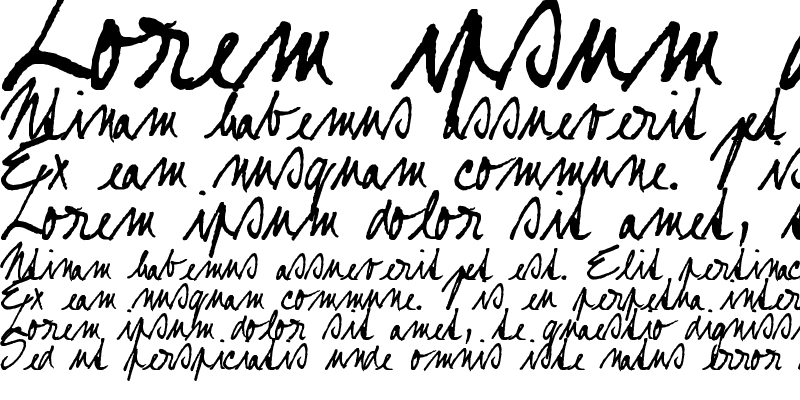 Lorem ipsum
Utinam habemus assueverit pet
Ex eam nusquam commune. I is
Lorem ipsum dolor sit amet,
Utinam habemus assueverit pet est. Elit pertinac
Ex eam nusquam commune. I is en perpetua inter
Lorem ipsum dolor sit amet, te quaestio digniss
Sed ut perspiciatis unde omnis iste natus error